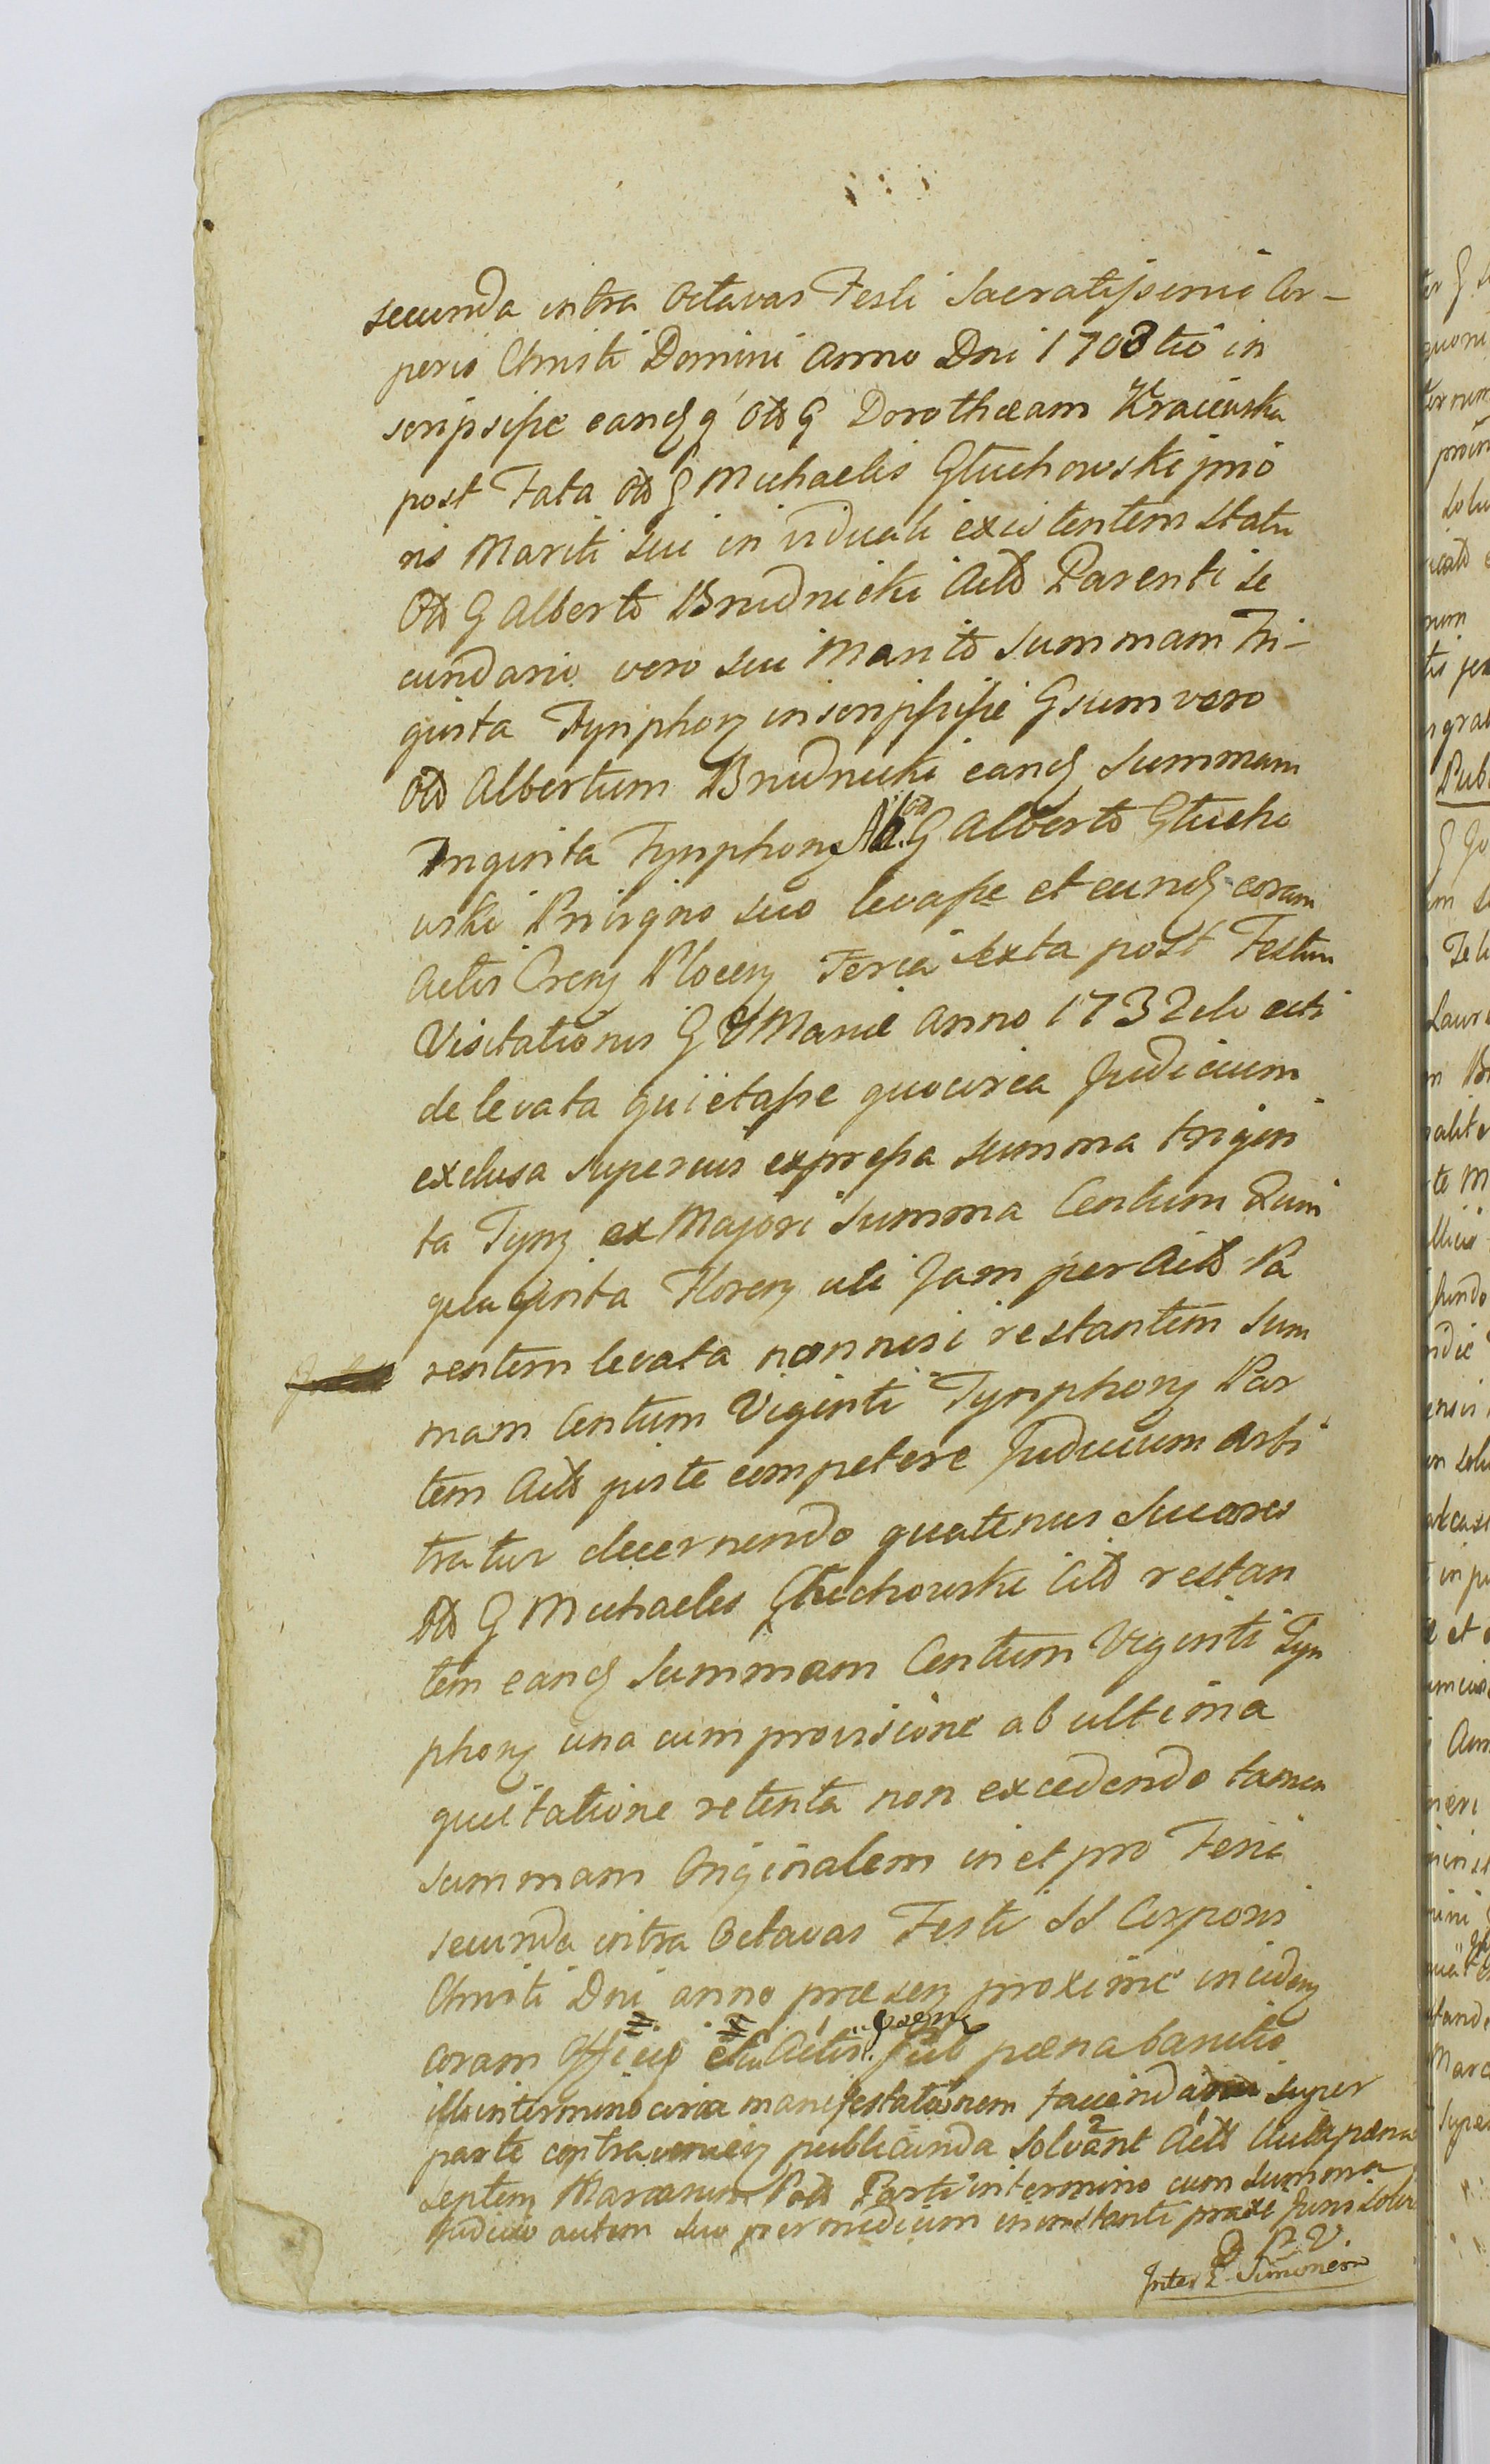 secunda intra Octavas Festi Sacratissimi Cor-
poris Christi Domini Anno Dni 1703tio in
scripsisse eandq Od G Dorotheam Kraiewska
post Fata Od G Michaelis Głuchowski prio
ris Mariti sui in viduali existentem statu
Od G Alberto Brudnicki Actt Parenti se
cundario vero sui Marito Summam Tri-
ginta Tynphonz inscripsisse Gsum vero
Od Albertum Brudnicki eandz Summam
Triginta Tynphonz Ab od G Alberto Głucho
wski Privigno suo levasse et eundz coram
Actis Crenz Plocenz Feria sexta post Festum
Visitationis G V Mariæ Anno 1732do acti
de levata quietasse quocirca Judicium
exclusa superius expressa summa trigin
ta Tynz ex Majori Summa Centum Quin
quaginta Florenz uti Jam per Actt Pa
rentem levata nonnisi restantem Sum
mam Centum Viginti Tynphonz Par
tem Actt juste competere Judicium arbi
tratur decernendo quatenus Succores
Od G Michaelis Głuchowski Citt restan
tem eandz Summam Centum Viginti Tyn
phonz una cum provisione ab ultima
quietatione retenta non excedendo tamen
summam Originalem in et pro Feria
secunda intra Octavas Festi SS Corporis
Christi Dni anno præsenz proxime incidenz
coram Officio Actis sub pæna banitio
illo in termino circa manifestationem facienda super
parte contravenienz publicanda solvant Actt pæna
septem Marcarum Parti in termino cum summa
Judicio autem suo per medium in instanti
D P V.
Inter G Simonem